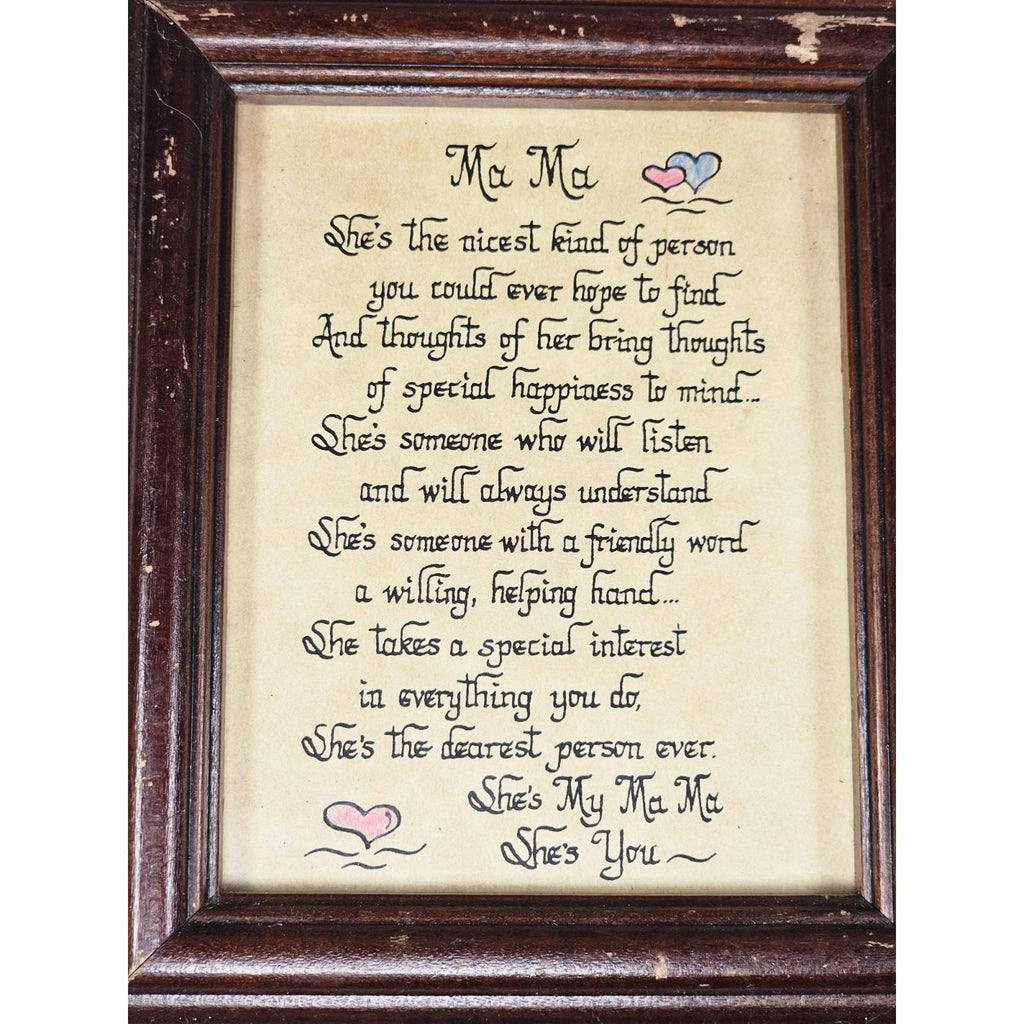 Ma Ma
She's the nicest kind of person
you could ever hope to find
And thoughts of her bring thoughts
of special happiness to mind...
She's someone who will listen
and will always understand
She's someone with a friendly word
a willing, helping hand...
She takes a special interest
in everything you do,
She's the dearest person ever.
She's My Ma Ma
She's You